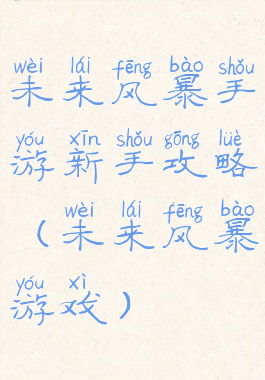 wèi lái fēng bào shǒu
未来风暴手
yóu xīn shǒu gōng lüè
游新手攻略
wèi lái fēng bào
（未来风暴
yóu xì
游戏）